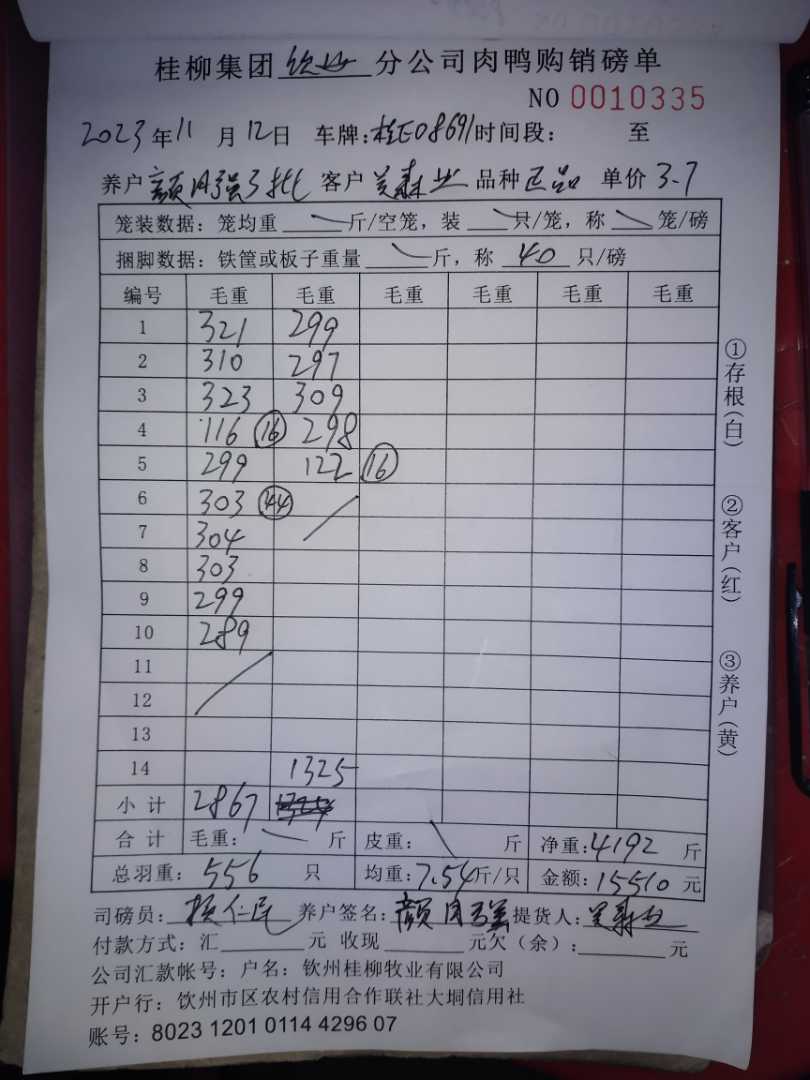 桂柳集团 钦州 分公司肉鸭购销磅单
NO 0010335
2023年11月12日 车牌:桂E08691时间段: 至
养户 颜月强3批 客户 吴森业 品种 正品 单价 3.7
笼装数据:笼均重 斤/空笼,装 只/笼,称 笼/磅
捆脚数据:铁筐或板子重量 斤,称 40 只/磅
编号 毛重 毛重 毛重 毛重 毛重 毛重
1 321 299
2 310 297
3 323 309
4 116 16 298
5 299 122 16
6 303 44
7 304
8 303
9 299
10 289
11
12
13
14 1325
小计 2867
合计 毛重: 斤 皮重: 斤 净重:4192 斤
总羽重: 556 只 均重:7.54斤/只 金额:15510元
司磅员: 仁民 养户签名: 颜月强 提货人: 吴森业
付款方式:汇 元 收现 元欠(余): 元
公司汇款帐号:户名:钦州桂柳牧业有限公司
开户行:钦州市区农村信用合作联社大垌信用社
账号:8023 1201 0114 4296 07
①存根(白)
②客户(红)
③养户(黄)